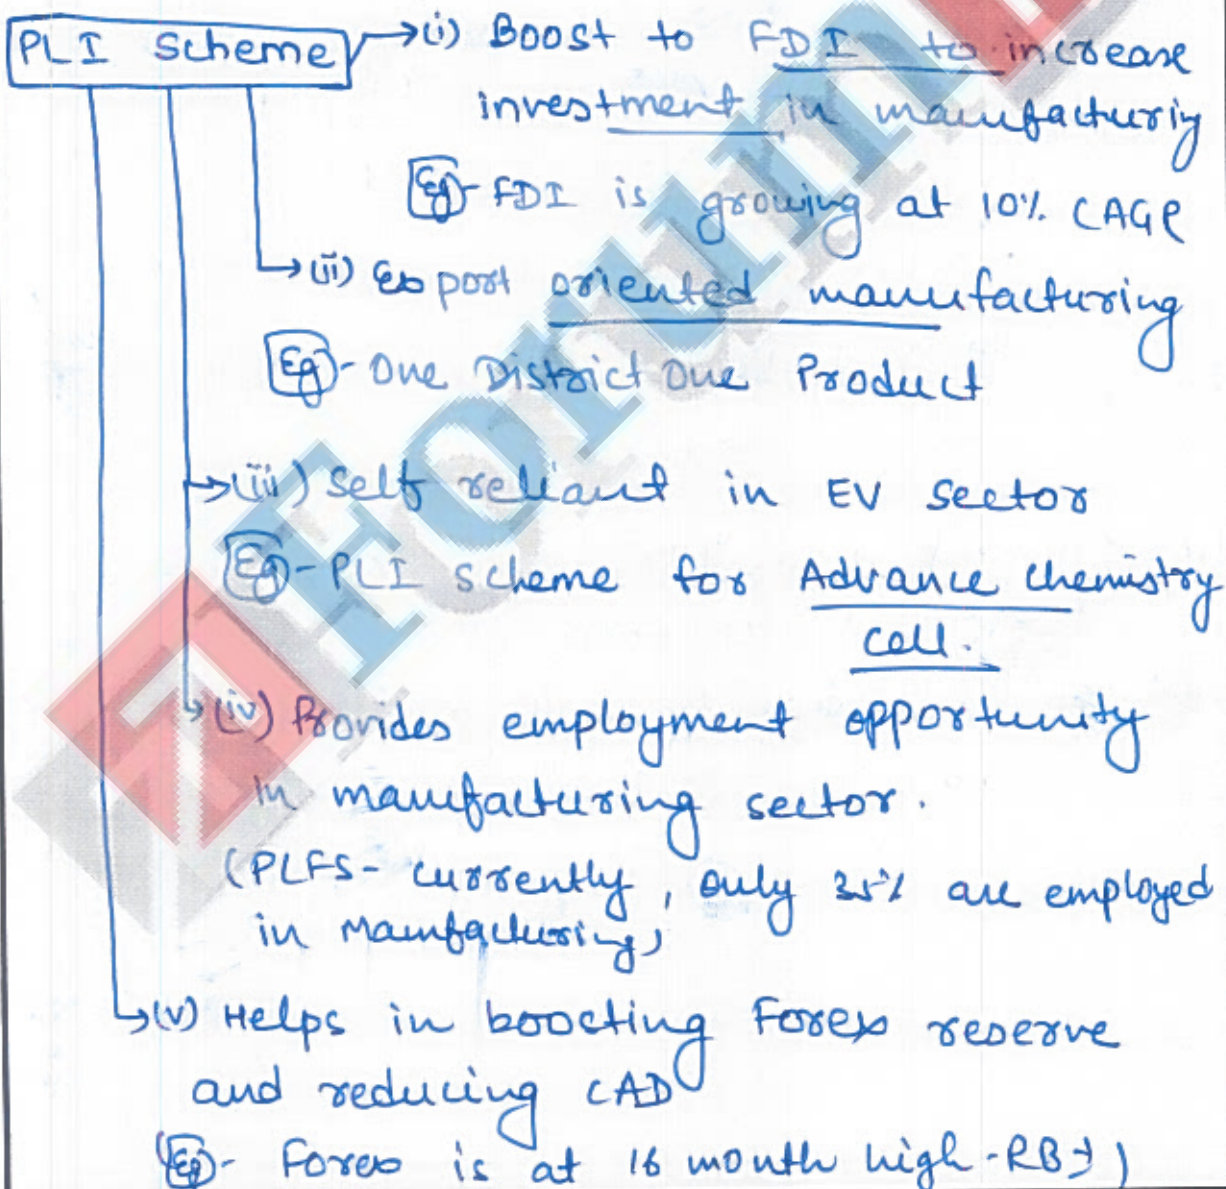 PLI Scheme
(i) Boost to FDI to increase
investment in manufacturing
Eg - FDI is growing at 10% CAGR
(ii) Export oriented manufacturing
Eg - One District One Product
(iii) Self reliant in EV sector
Eg - PLI scheme for Advance chemistry
cell.
(iv) Provides employment opportunity
in manufacturing sector.
(PLFS - currently, only 35% are employed
in manufacturing)
(v) Helps in boocting Forex reserve
and reducing CAD
(Eg - Forex is at 16 month high - RBI)
Forum